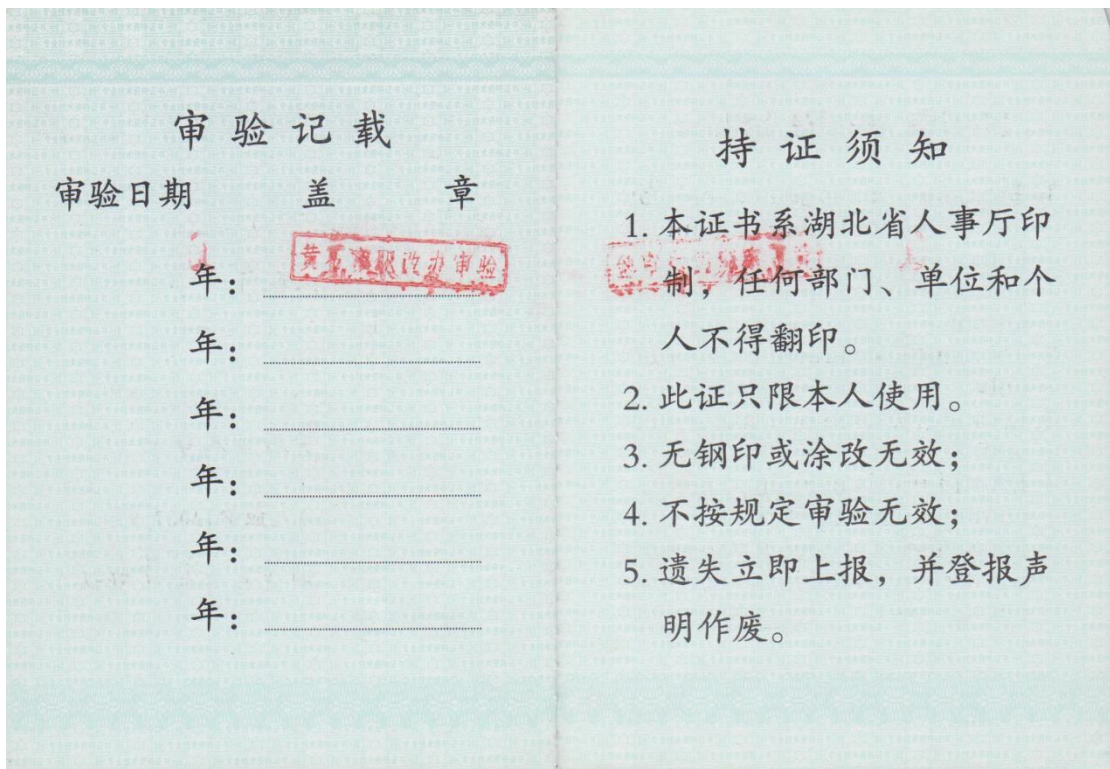 审验记载
审验日期 盖 章
年：
黄石市职改办审验
年：
年：
年：
年：
年：
持证须知
1. 本证书系湖北省人事厅印
制，任何部门、单位和个
人不得翻印。
2. 此证只限本人使用。
3. 无钢印或涂改无效；
4. 不按规定审验无效；
5. 遗失立即上报，并登报声
明作废。